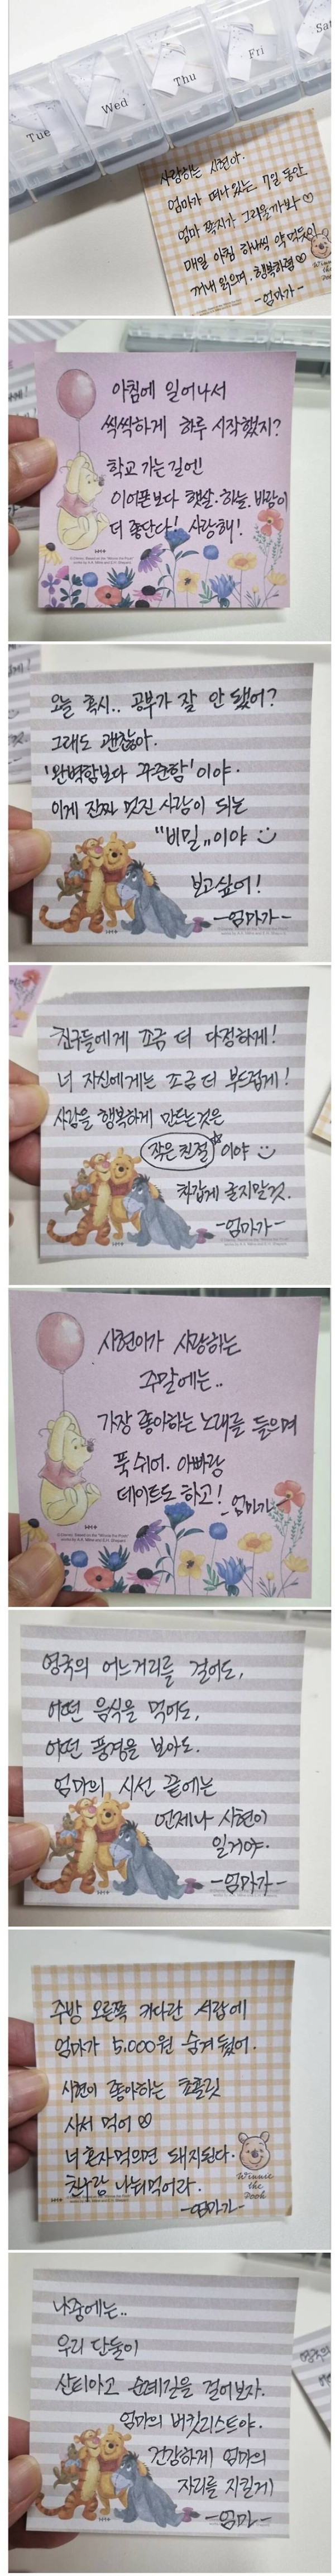 Tue
Wed
Thu
Fri
Sat
사랑하는 시현아.
엄마가 떠나있는 7일 동안
엄마 쪽지가 그리울까봐♡
매일 아침 하나씩 약 먹듯이
꺼내 읽으며. 행복하렴♡
-엄마가-
아침에 일어나서
씩씩하게 하루 시작했지?
학교 가는 길엔!
이어폰보다 햇살·하늘. 바람이
더 좋단다! 사랑해!
오늘 혹시.. 공부가 잘 안 됐어?
그래도 괜찮아.
'완벽함보다 꾸준함'이야.
이게 진짜 멋진 사람이 되는
"비밀"이야
보고싶어!
-엄마가-
친구들에게 조금 더 다정하게!
너 자신에게는 조금 더 부드럽게!
사람을 행복하게 만드는것은
작은 친절 이야
차갑게 굴지말것.
-엄마가-
시현이가 사랑하는
주말에는..
가장 좋아하는 노래를 들으며
푹 쉬어. 아빠랑
데이트도 하고!
-엄마가-
영국의 어느거리를 걸어도,
어떤 음식을 먹어도,
어떤 풍경을 보아도.
엄마의 시선 끝에는
언제나 시현이
일거야.
-엄마가-
주방 오른쪽 커다란 서랍에
엄마가 5,000원 숨겨뒀어.
시현이 좋아하는 초콜릿
사서 먹어♡
너 혼자먹으면 돼지된다.
친구랑 나눠먹어라.
-엄마가-
Winnie
the
Pooh
나중에는..
우리 단둘이
산티아고 순례길을 걸어보자.
엄마의 버킷리스트야.
건강하게 엄마의
자리를 지킬게!
-엄마-